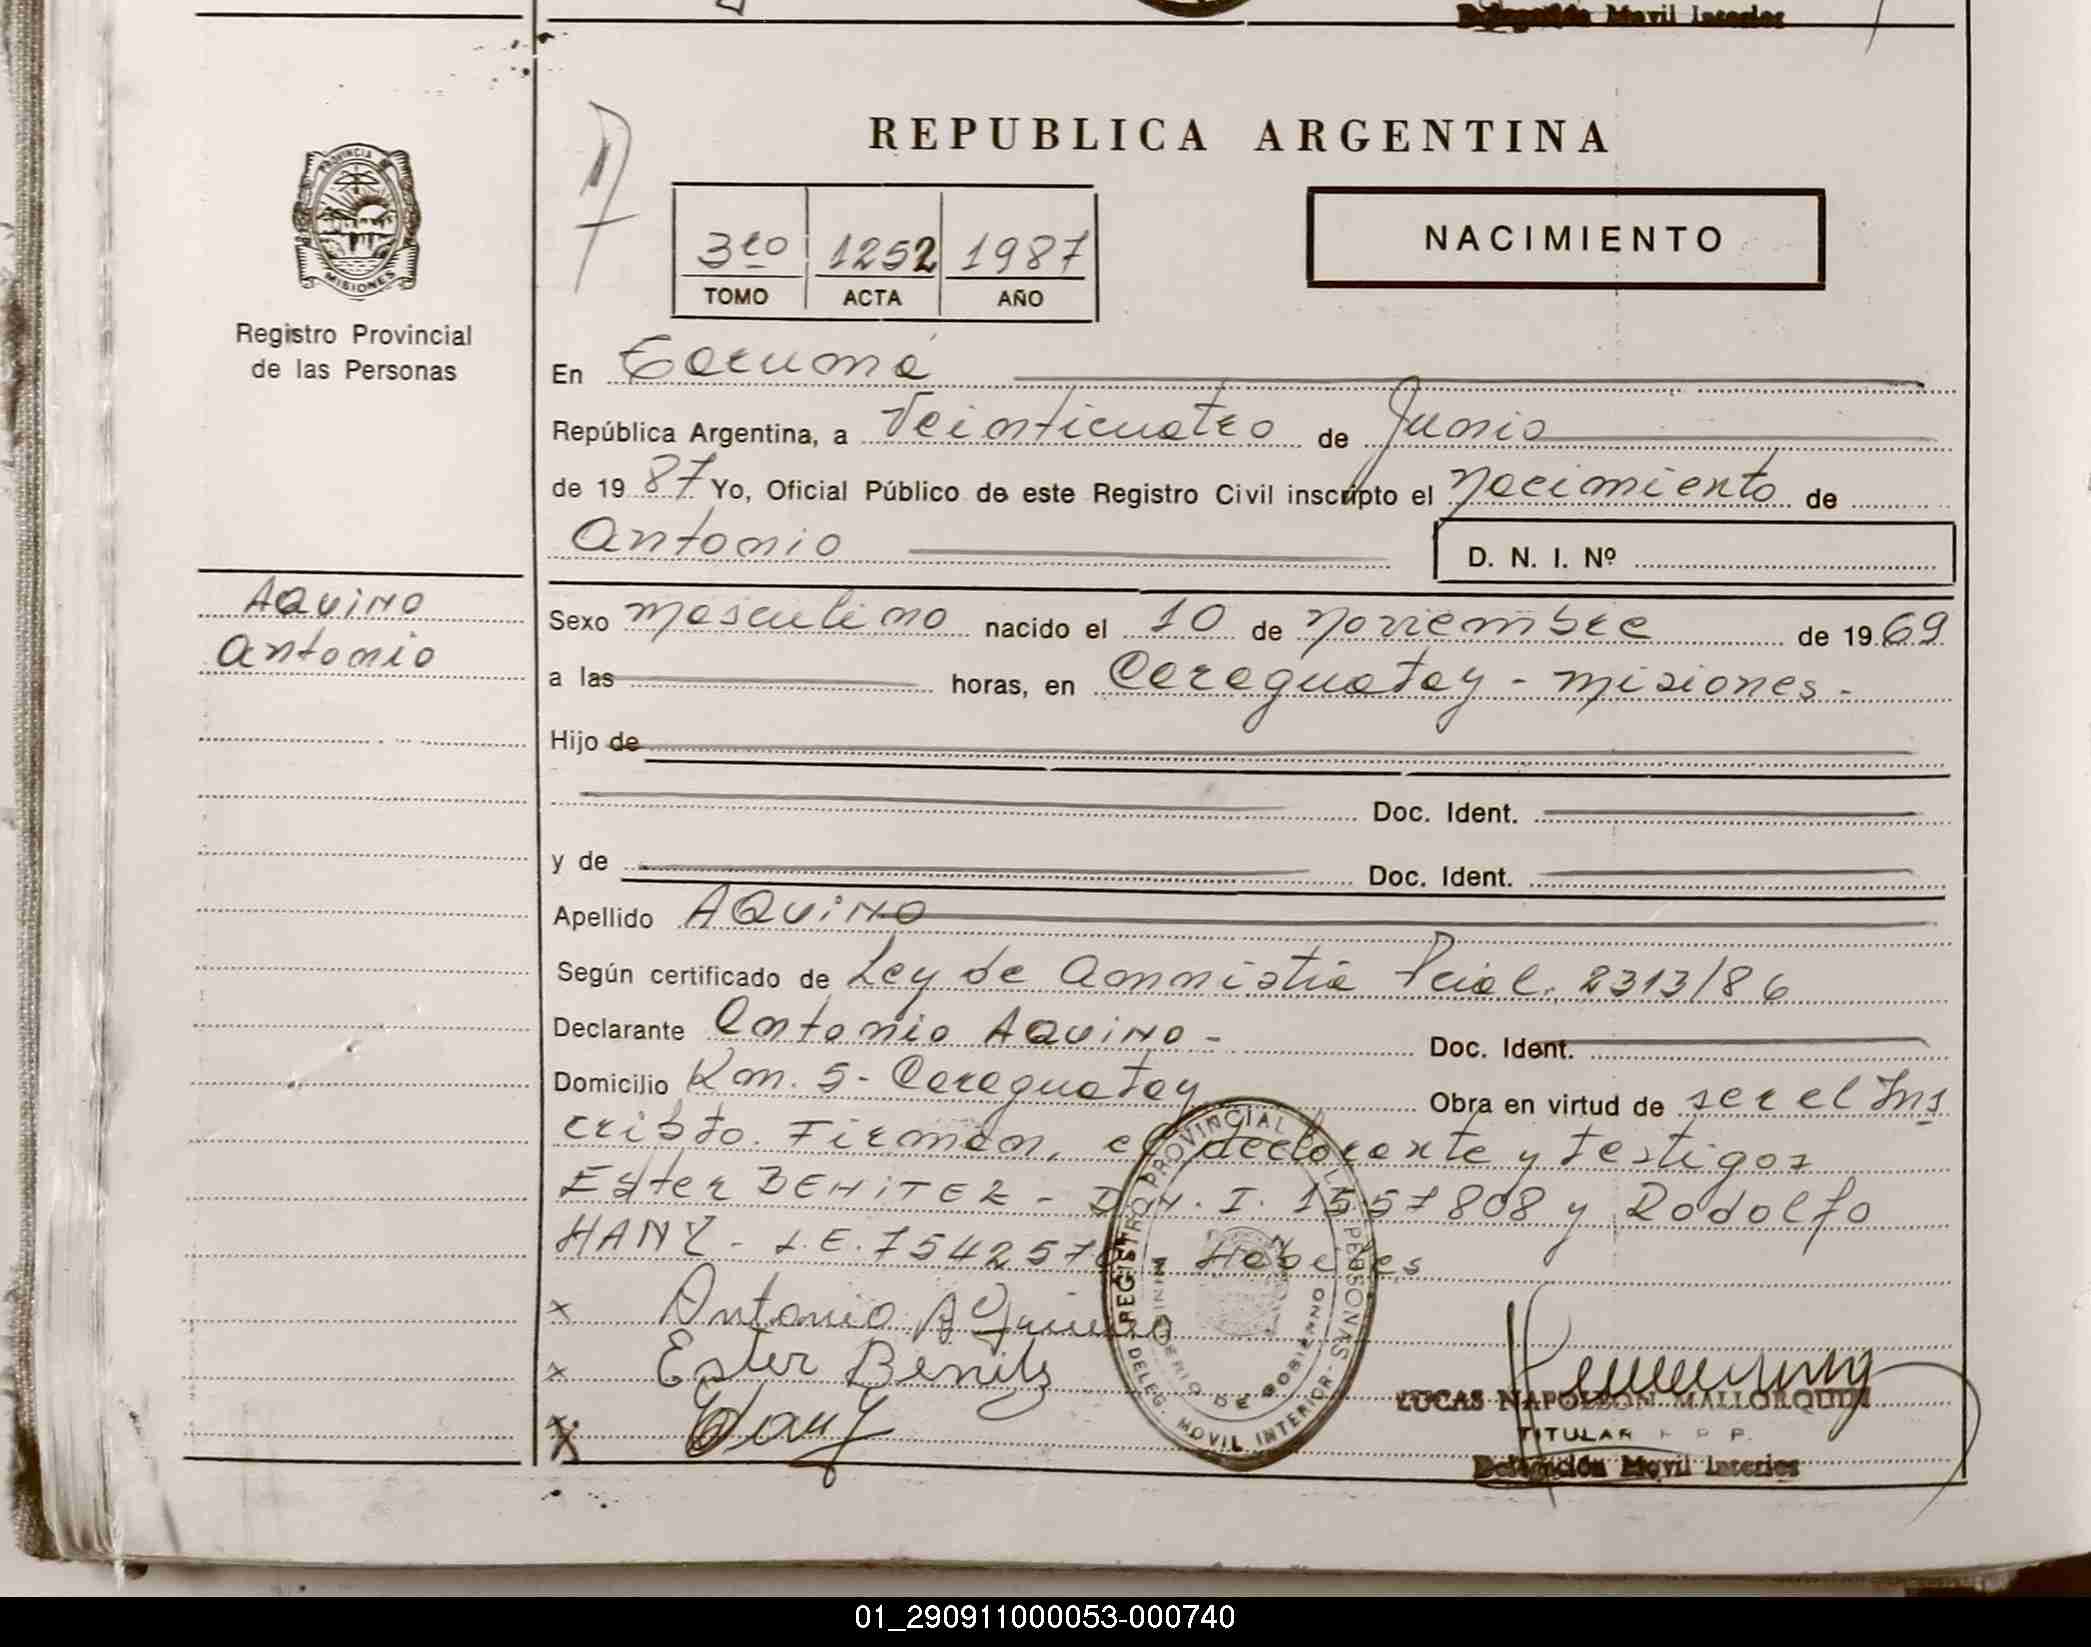 Delegación Movil Interior
PROVINCIA DE
MISIONES
Registro Provincial
de las Personas
REPUBLICA ARGENTINA
3ro 1252 1987
TOMO ACTA AÑO
NACIMIENTO
En Cerumá
República Argentina, a Veinticuatro de Junio
de 19 87 Yo, Oficial Público de este Registro Civil inscripto el Nacimiento de
Antonio
D. N. I. Nº
AQUINO
Antonio
Sexo Masculino nacido el 10 de Noviembre de 19 69
a las horas, en Caraguatay - Misiones -
Hijo de
Doc. Ident.
y de Doc. Ident.
Apellido AQUINO
Según certificado de Ley de Amnistia Pcial. 2313/86
Declarante Antonio AQUINO - Doc. Ident.
Domicilio Km. 5 - Caraguatay Obra en virtud de ser el Ins
cripto. Firman, el declarante y testigos
Ester BENITEZ - D.N.I. 1557808 y Rodolfo
HANY - L.E. 754257 Hábiles
x Antonio Aquino
x Ester Benitz
x Hany
REGISTRO PROVINCIAL DE LAS PERSONAS - DELEG. MOVIL INTERIOR -
MINISTERIO DE GOBIERNO
LUCAS NAPOLEON MALLORQUIN
TITULAR R P P.
Delegación Movil Interior
01_290911000053-000740